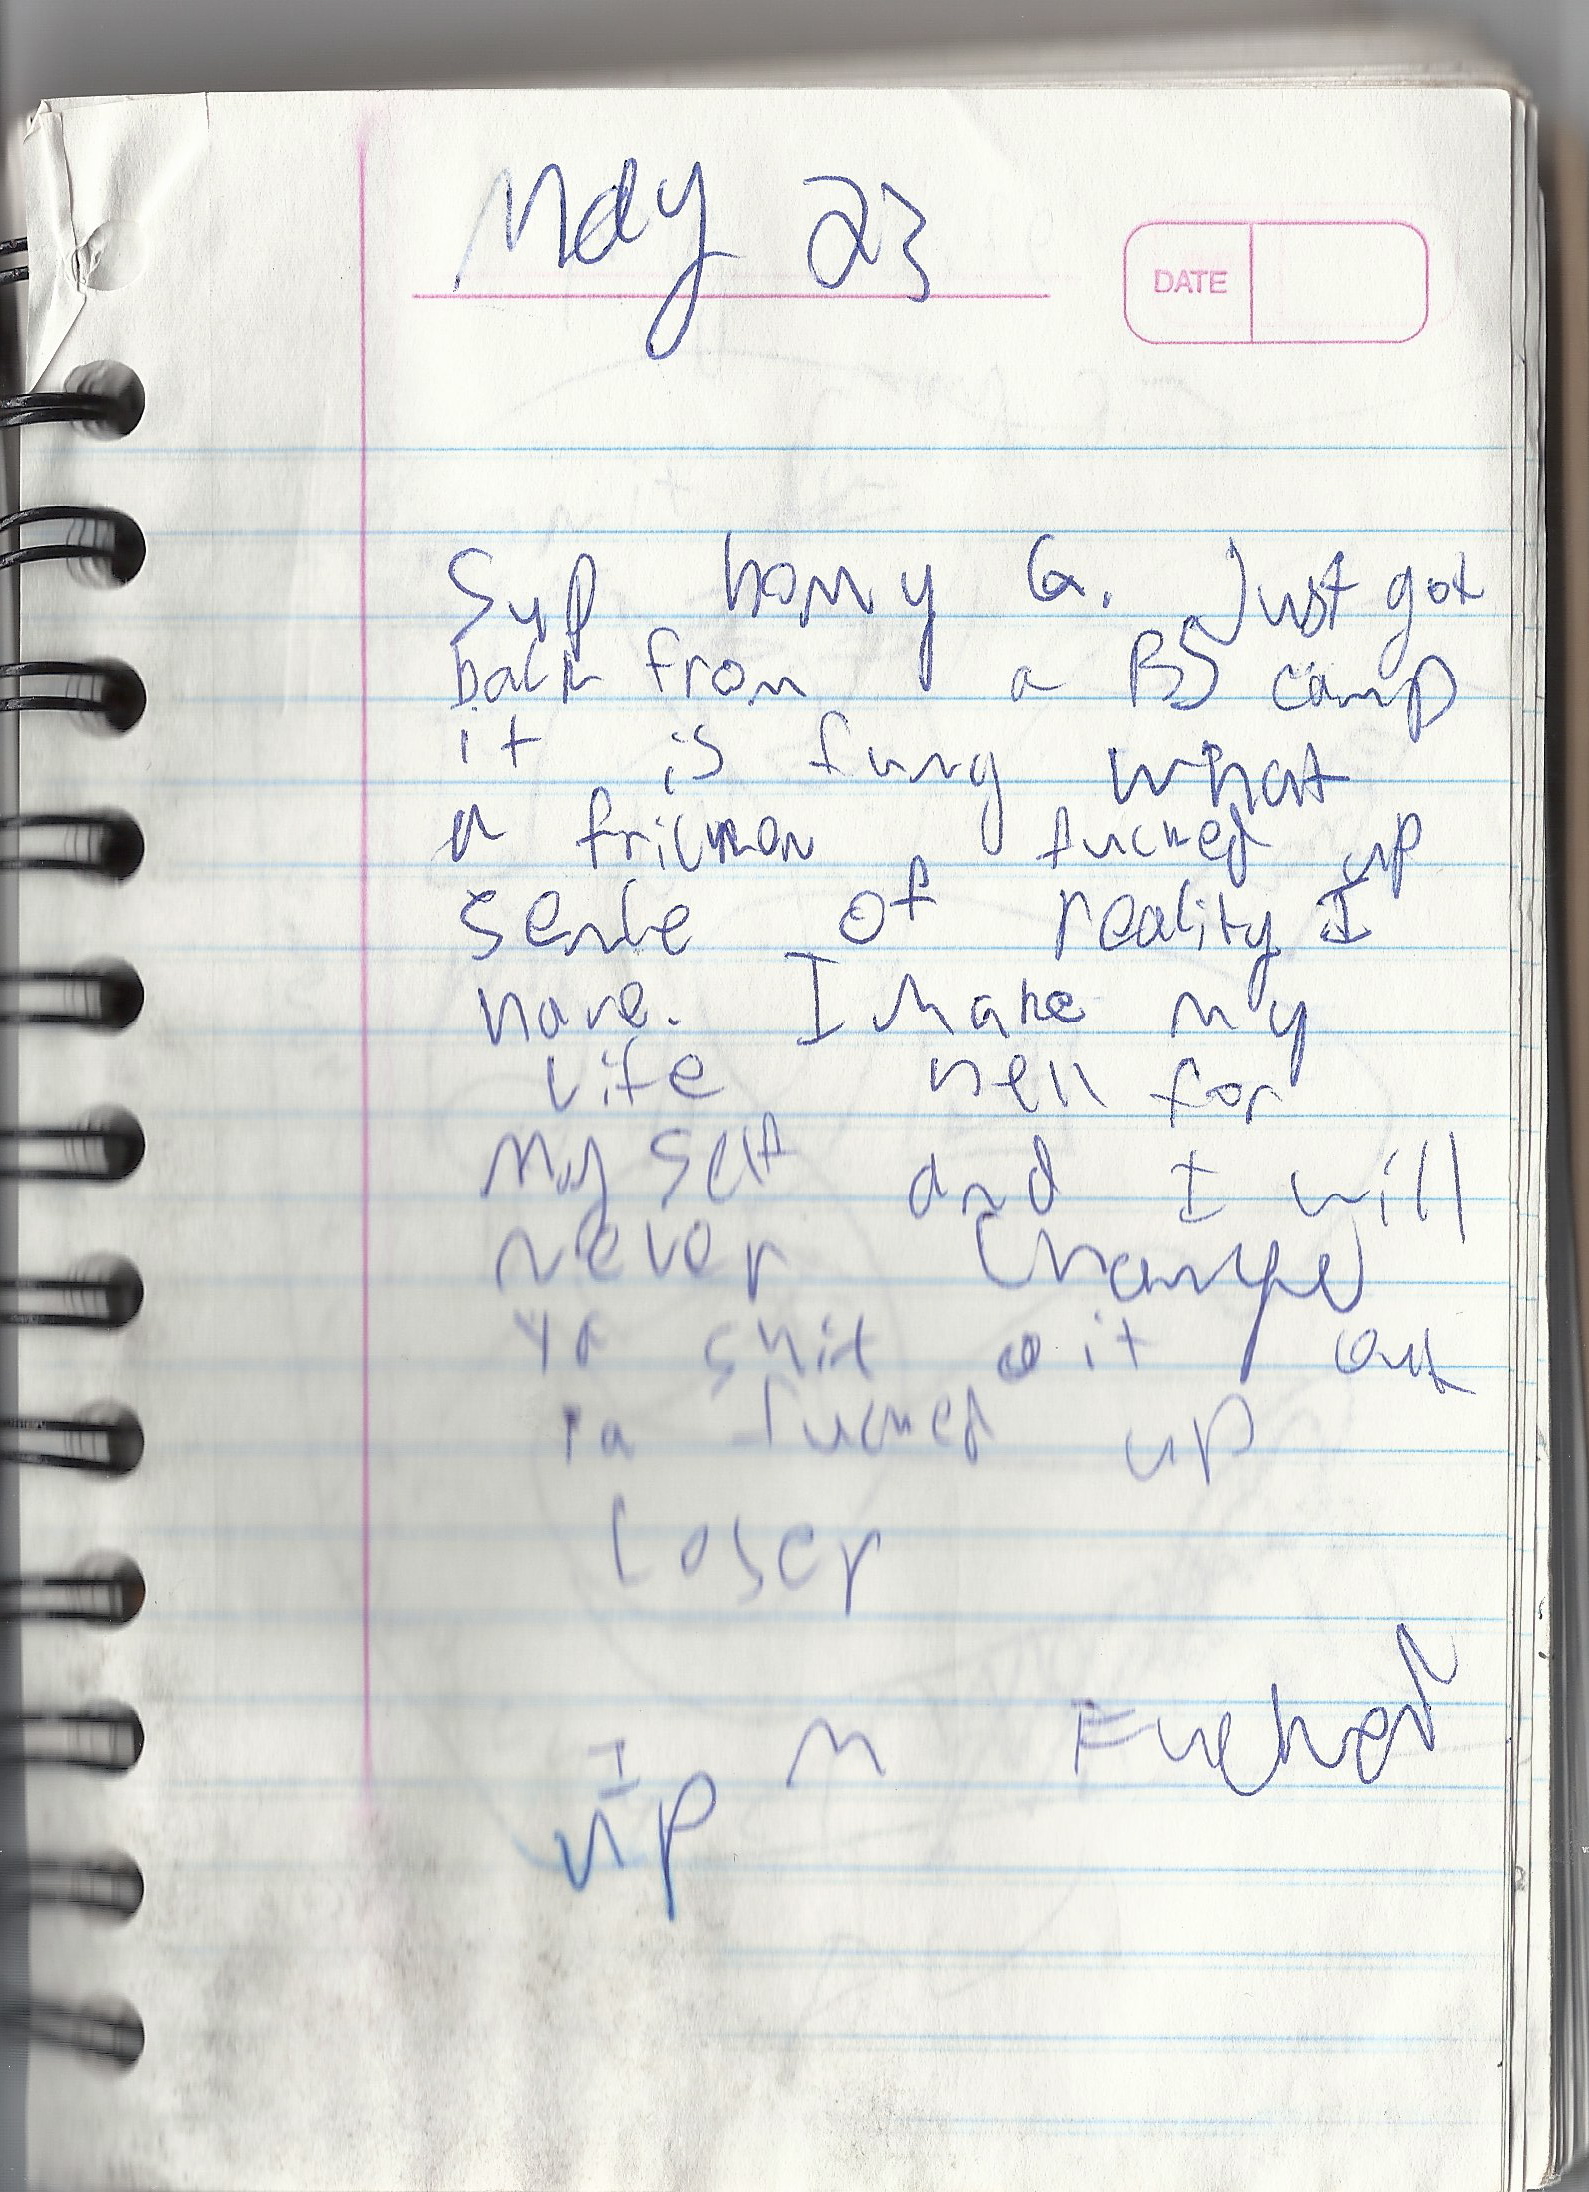 May 23
DATE
Sup homy G. Just got
back from a BS camp
it is funy what
a fricken fucked up
sense of reality I
have. I make my
life hell for
my self and I will
never change
ya shit it out
ya fucked up
loser
I m Fucked
up